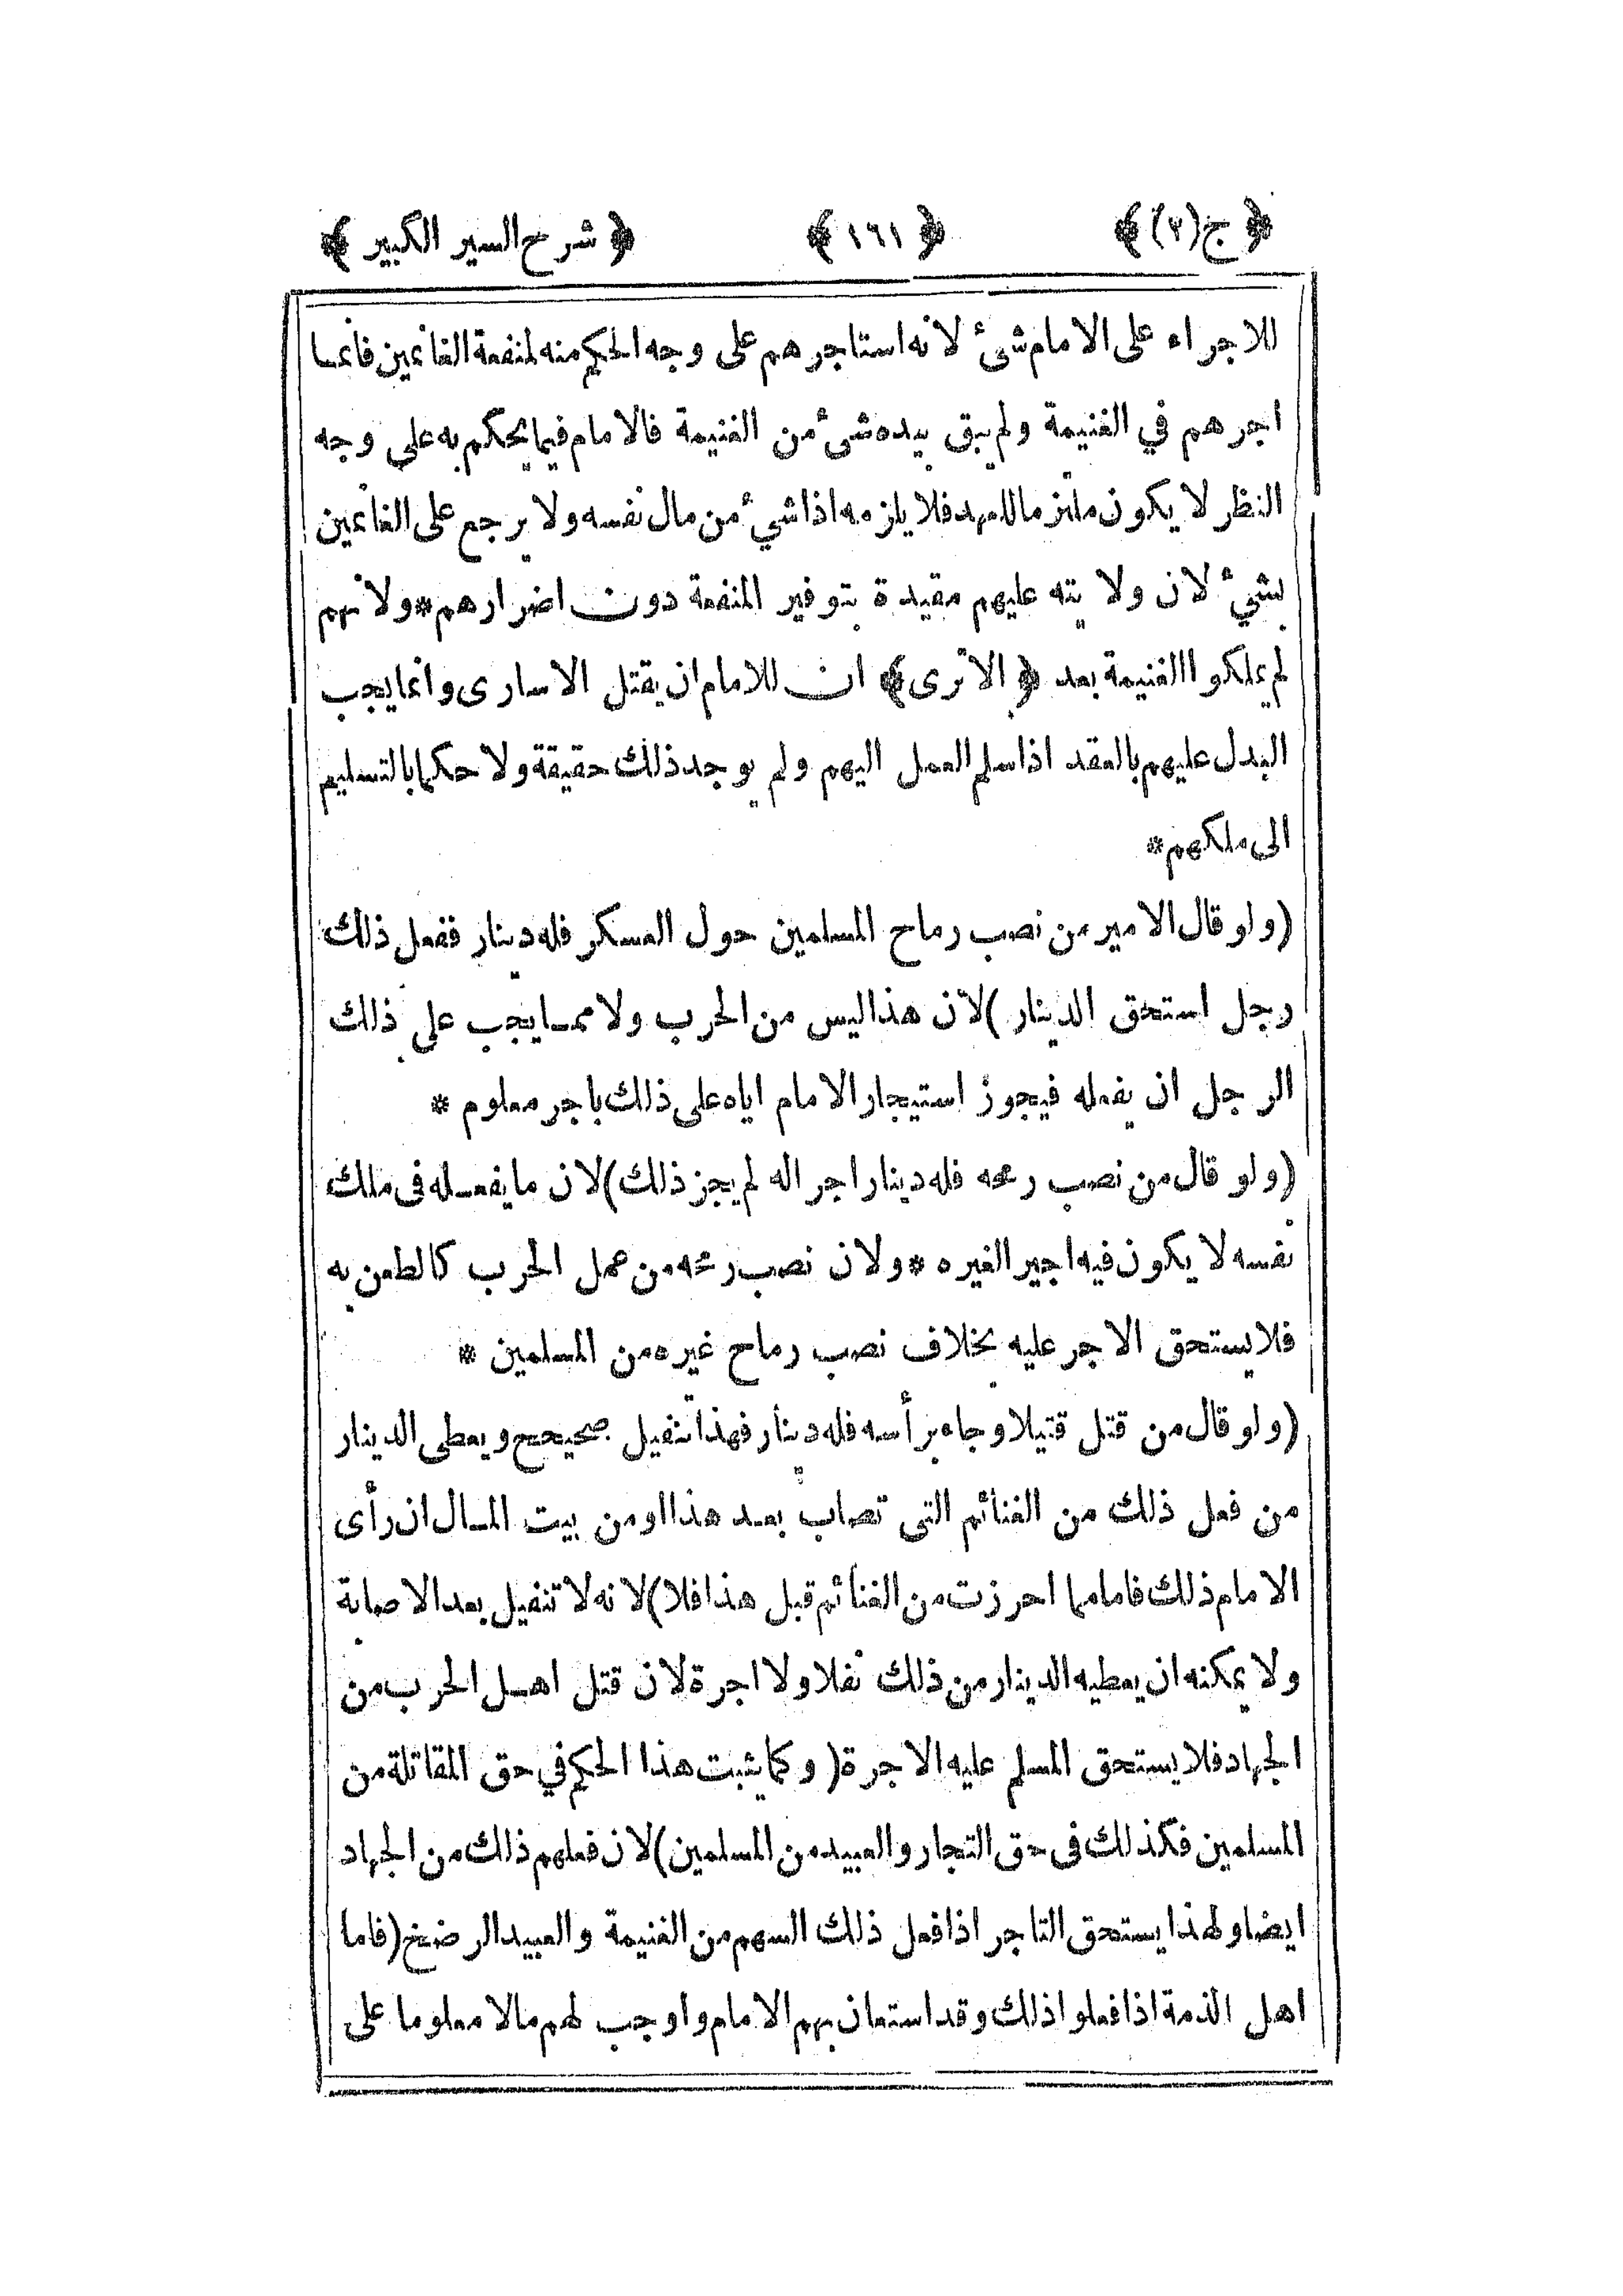 ﴿ ج(٢) ﴾ ﴿ ١٦١ ﴾ ﴿ شرح السير الكبير ﴾
للاجراء على الامام شئ لانه استاجرهم على وجه الحكم منه لمنفعة الغانمين فانما
اجرهم في الغنيمة ولم يبق بيده شئ من الغنيمة فالامام فيما يحكم به على وجه
النظر لا يكون ملتزما للعهد فلا يلزمه اذا شيء من مال نفسه ولا يرجع على الغانمين
بشيء لان ولايته عليهم مقيدة بتوفير المنفعة دون اضرارهم * ولانهم
لم يملكوا الغنيمة بعد ﴿ الا ترى ﴾ ان للامام ان يقتل الاسارى وانما يجب
البدل عليهم بالعقد اذا سلم العمل اليهم ولم يوجد ذلك حقيقة ولا حكما بالتسليم
الى ملكهم *
(ولو قال الامير من نصب رماح المسلمين حول العسكر فله دينار ففعل ذلك
رجل استحق الدينار) لان هذا ليس من الحرب ولا مما يجب على ذلك
الرجل ان يفعله فيجوز استيجار الامام اياه على ذلك باجر معلوم *
(ولو قال من نصب رمحه فله دينار اجر اله لم يجز ذلك) لان ما يفعله فى ملك
نفسه لا يكون فيه اجير الغيره * ولان نصب رمحه من عمل الحرب كالطعن به
فلا يستحق الاجر عليه بخلاف نصب رماح غيره من المسلمين *
(ولو قال من قتل قتيلا وجاء برأسه فله دينار فهذا تنفيل صحيح ويعطى الدينار
من فعل ذلك من الغنائم التى تصاب بعد هذا او من بيت المال ان رأى
الامام ذلك فاما مما احرزت من الغنائم قبل هذا فلا) لانه لا تنفيل بعد الاصابة
ولا يمكنه ان يعطيه الدينار من ذلك نفلا ولا اجرة لان قتل اهل الحرب من
الجهاد فلا يستحق المسلم عليه الاجرة (وكما يثبت هذا الحكم في حق المقاتلة من
المسلمين فكذلك فى حق التجار والعبيد من المسلمين) لان فعلهم ذلك من الجهاد
ايضا ولهذا يستحق التاجر اذا فعل ذلك السهم من الغنيمة والعبيد الرضخ (فاما
اهل الذمة اذا فعلوا ذلك وقد استعان بهم الامام واوجب لهم مالا معلوما على